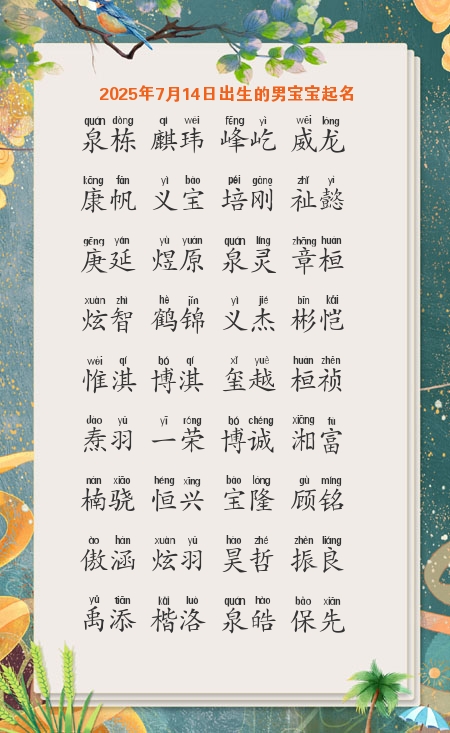 2025年7月14日出生的男宝宝起名
quán dòng qí wěi fēng yì wēi lóng
泉栋 麒玮 峰屹 威龙
kāng fān yì bǎo péi gāng zhǐ yì
康帆 义宝 培刚 祉懿
gēng yán yù yuán quán líng zhāng huán
庚延 煜原 泉灵 章桓
xuàn zhì hè jǐn yì jié bīn kǎi
炫智 鹤锦 义杰 彬恺
wéi qí bó qí xǐ yuè huán zhēn
惟淇 博淇 玺越 桓祯
dào yǔ yī róng bó chéng xiāng fù
焘羽 一荣 博诚 湘富
nán xiāo héng xīng bǎo lóng gù míng
楠骁 恒兴 宝隆 顾铭
ào hán xuàn yǔ hào zhé zhèn liáng
傲涵 炫羽 昊哲 振良
yǔ tiān kǎi luò quán hào bǎo xiān
禹添 楷洛 泉皓 保先